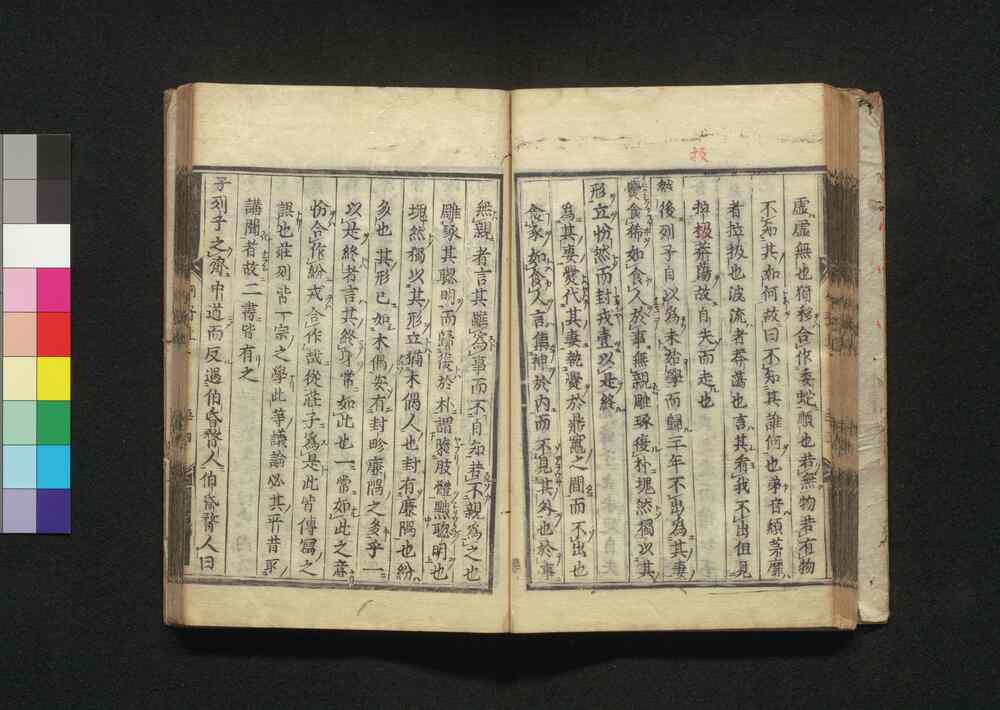 扱
虛虛無也猗移合作委蛇順也若無物若有物
不知其如何故曰不知其誰何也弟音頹茅靡
者拉扱也波流者莽蕩也言其看我不出但見
拉扱莽蕩故自失而走也
然後列子自以爲未始學而歸三年不出為其妻
爨食狶如食人於事無親雕琢復朴塊然獨以其
形立忿然而封戎壹以是終
爲其妻爨代其妻執爨於鼎竈之間而不出也
食豕如食人言集神於內而不見其外也於事
無親者言其雖為事而不自知若不親為之也
雕琢其聰明而歸復於朴謂隳肢體黜聰明也
塊然獨以其形立猶木偶人也封有廉隅也紛
多也其形已如木偶安有封畛廉隅之多乎一
以是終者言其終身常如此也一常如此之意
忿合作紛戎合作哉從莊子為是此皆傳寫之
誤也莊列皆一宗之學此等議論必其平昔
講聞者故二書皆有之
子列子之齊中道而反遇伯昏瞀人伯昏瞀人曰